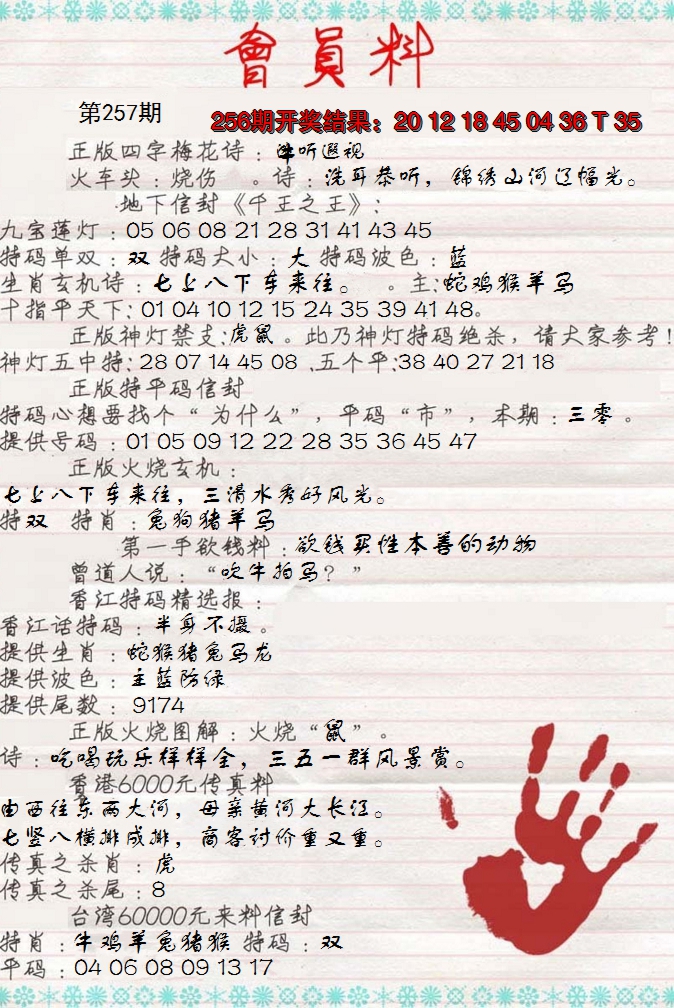 會員料
第257期
256期开奖结果：20 12 18 45 04 36 T 35
正版四字梅花诗：听遐视
火车头：烧伤 。诗：洗耳恭听，锦绣山河辽幅光。
地下信封《千王之王》：
九宝莲灯：05 06 08 21 28 31 41 43 45
特码单双：双 特码大小：大 特码波色：蓝
生肖玄机诗：七上八下车来往。 。主：蛇鸡猴羊马
十指平天下：01 04 10 12 15 24 35 39 41 48。
正版神灯禁支：虎鼠。此乃神灯特码绝杀，请大家参考！
神灯五中特：28 07 14 45 08 、五个平：38 40 27 21 18
正版特平码信封
特码心想要找个“为什么”，平码“市”，本期：三零。
提供号码：01 05 09 12 22 28 35 36 45 47
正版火烧玄机：
七上八下车来往，三清水秀好风光。
特双 特肖：兔狗猪羊马
第一手欲钱料：欲钱买性本善的动物
曾道人说：“吹牛拍马？”
香江特码精选报：
香江话特码：半身不摄。
提供生肖：蛇猴猪兔马龙
提供波色：主蓝防绿
提供尾数：9174
正版火烧图解：火烧“鼠”。
诗：吃喝玩乐样样全，三五一群风景赏。
香港6000元传真料
由西往东两大河，母亲黄河大长江。
七竖八横排成排，商客讨价重又重。
传真之杀肖：虎
传真之杀尾：8
台湾60000元来料信封
特肖：牛鸡羊兔猪猴 特码：双
平码：04 06 08 09 13 17